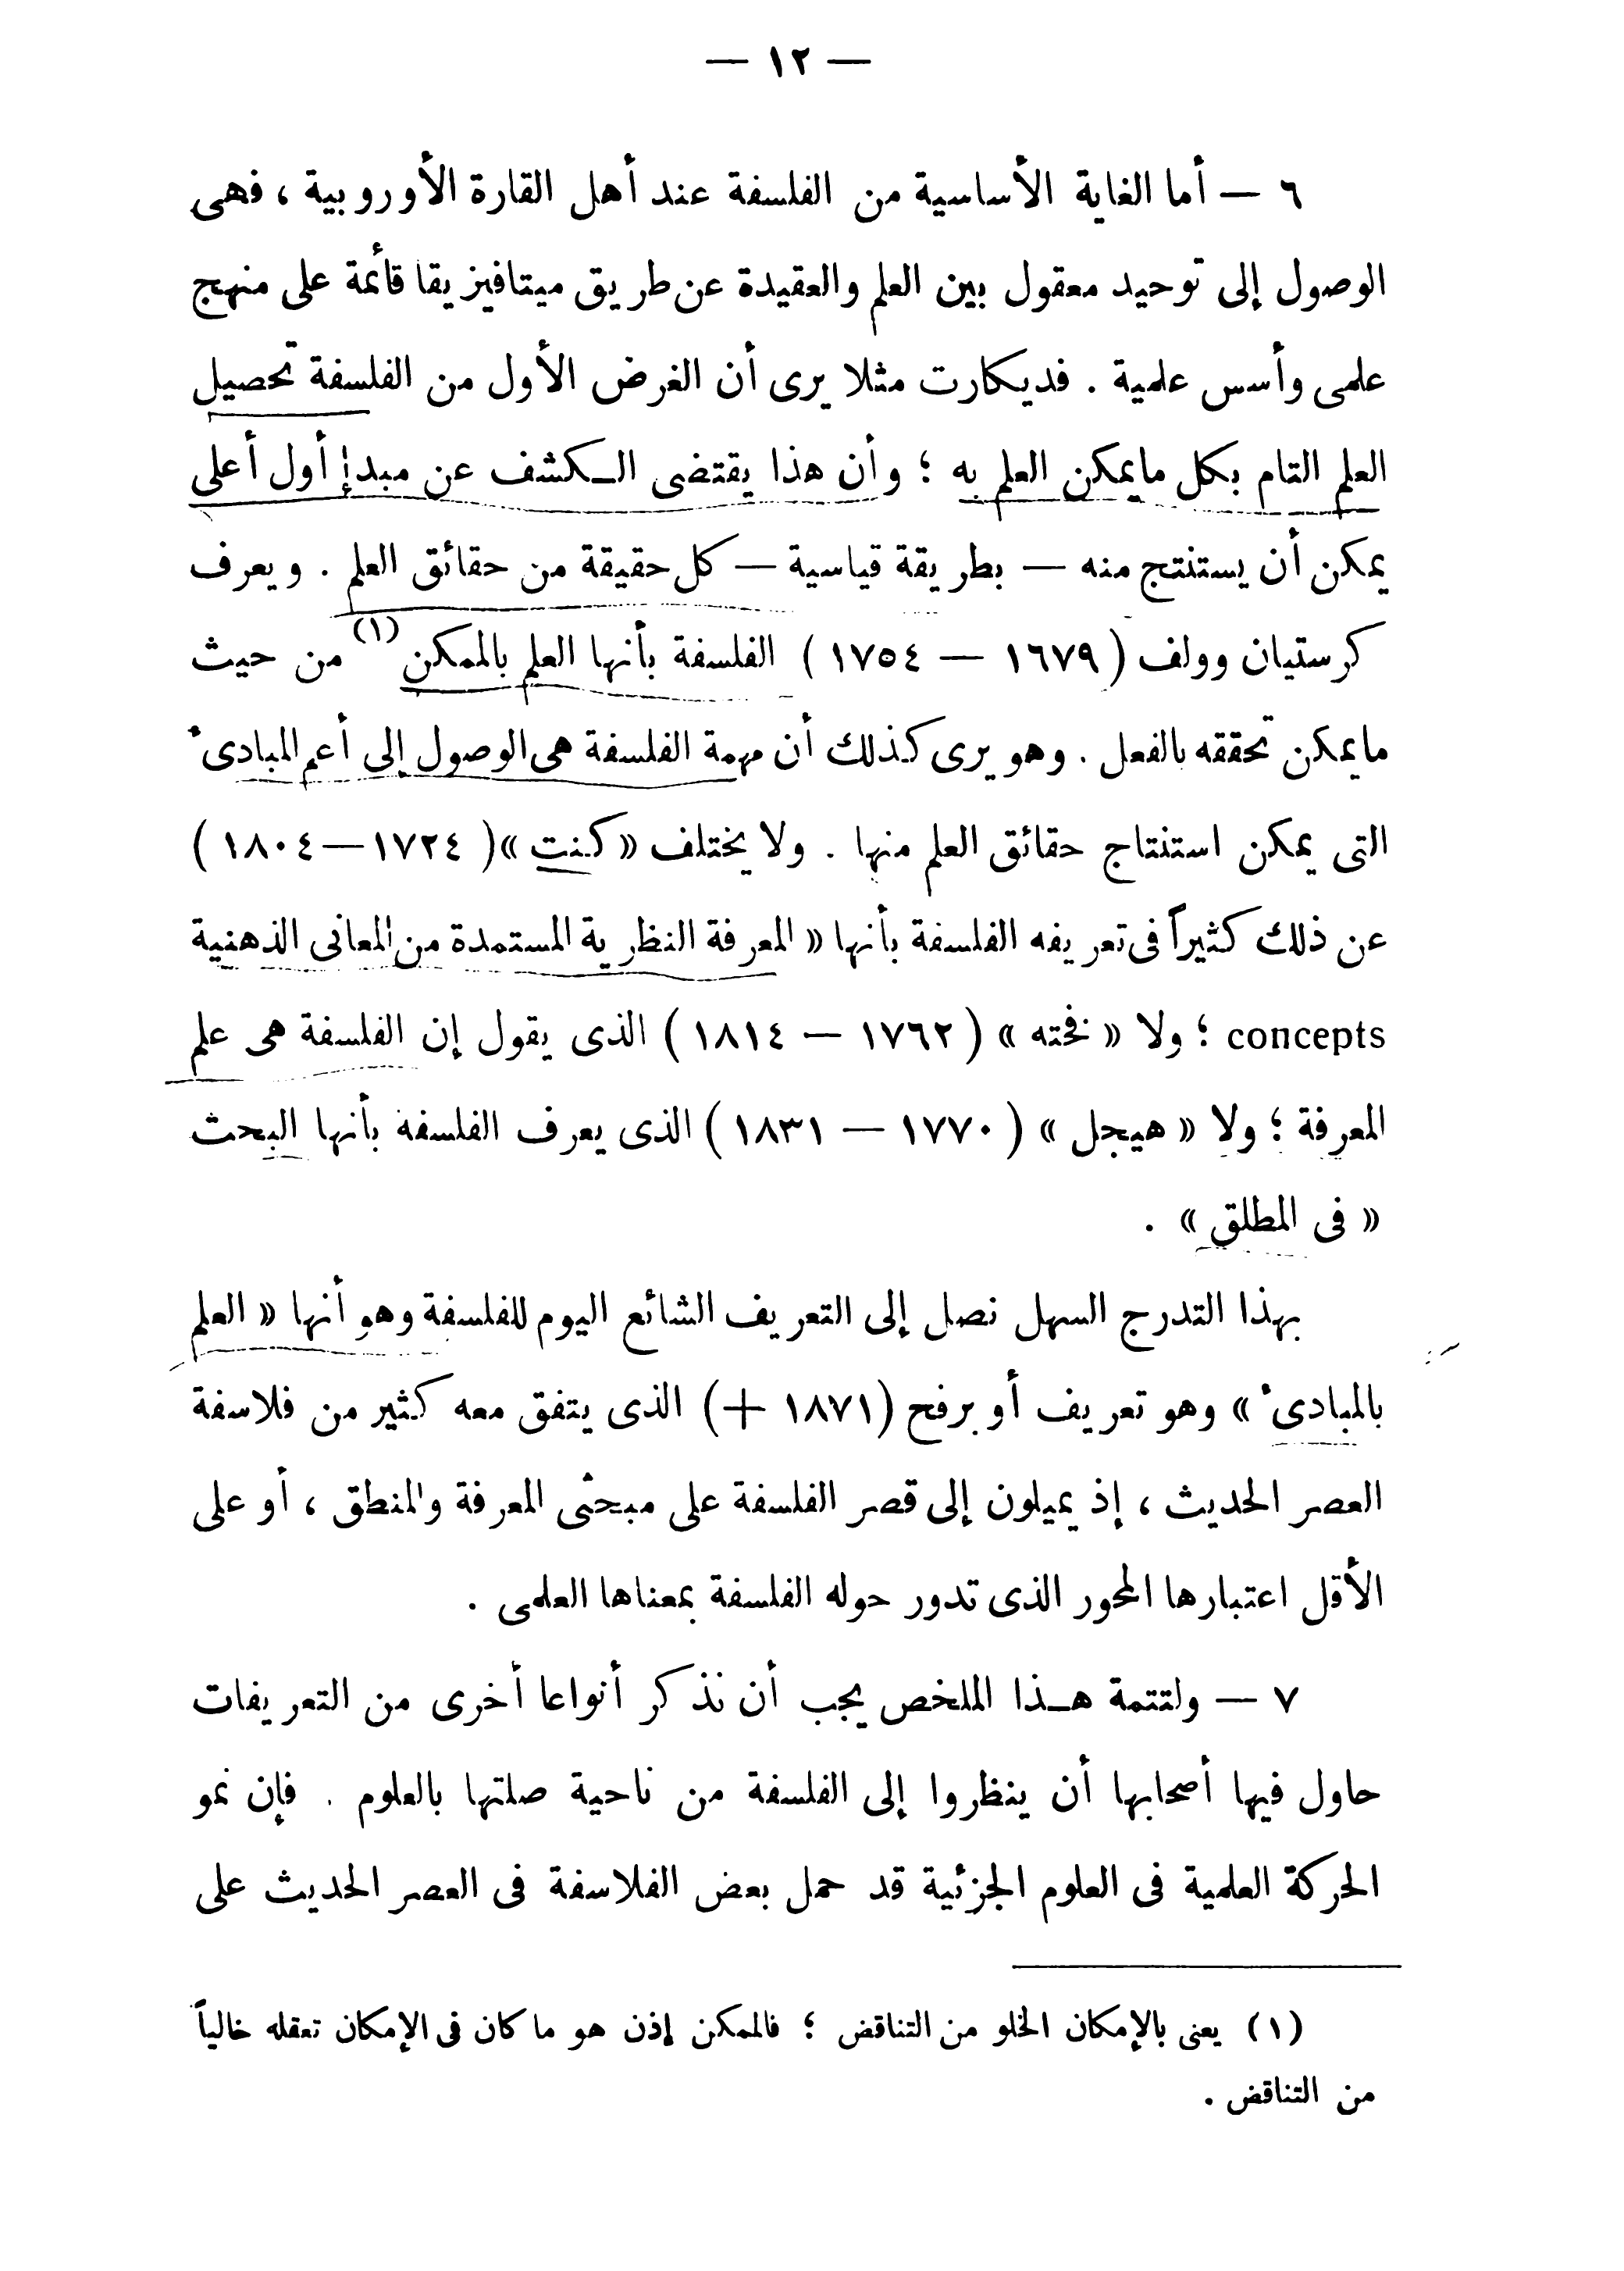 — ١٢ —
٦ — أما الغاية الأساسية من الفلسفة عند أهل القارة الأوروبية ، فهى
الوصول إلى توحيد معقول بين العلم والعقيدة عن طريق ميتافيزيقا قائمة على منهج
علمى وأسس علمية . فديكارت مثلا يرى أن الغرض الأول من الفلسفة تحصيل
العلم التام بكل مايمكن العلم به ؛ وأن هذا يقتضى الـكشف عن مبدإ أول أعلى
يمكن أن يستنتج منه — بطريقة قياسية — كل حقيقة من حقائق العلم . ويعرف
كرستيان وولف ( ١٦٧٩ — ١٧٥٤ ) الفلسفة بأنها العلم بالممكن (١) من حيث
مايمكن تحققه بالفعل . وهو يرى كذلك أن مهمة الفلسفة هى الوصول إلى أعم المبادىء
التى يمكن استنتاج حقائق العلم منها . ولا يختلف « كنت » ( ١٧٢٤ — ١٨٠٤ )
عن ذلك كثيراً فى تعريفه الفلسفة بأنها « المعرفة النظرية المستمدة من المعانى الذهنية
concepts ؛ ولا « فخته » ( ١٧٦٢ — ١٨١٤ ) الذى يقول إن الفلسفة هى علم
المعرفة ؛ ولا « هيجل » ( ١٧٧٠ — ١٨٣١ ) الذى يعرف الفلسفة بأنها البحث
« فى المطلق » .
بهذا التدرج السهل نصل إلى التعريف الشائع اليوم للفلسفة وهو أنها « العلم
بالمبادىء » وهو تعريف أوبرفج (١٨٧١ +) الذى يتفق معه كثير من فلاسفة
العصر الحديث ، إذ يميلون إلى قصر الفلسفة على مبحثى المعرفة والمنطق ، أو على
الأقل اعتبارها المحور الذى تدور حوله الفلسفة بمعناها العلمى .
٧ — ولتتمة هـذا الملخص يجب أن نذكر أنواعا أخرى من التعريفات
حاول فيها أصحابها أن ينظروا إلى الفلسفة من ناحية صلتها بالعلوم . فإن نمو
الحركة العلمية فى العلوم الجزئية قد حمل بعض الفلاسفة فى العصر الحديث على
(١) يعنى بالإمكان الخلو من التناقض ؛ فالممكن إذن هو ما كان فى الإمكان تعقله خالياً
من التناقض .